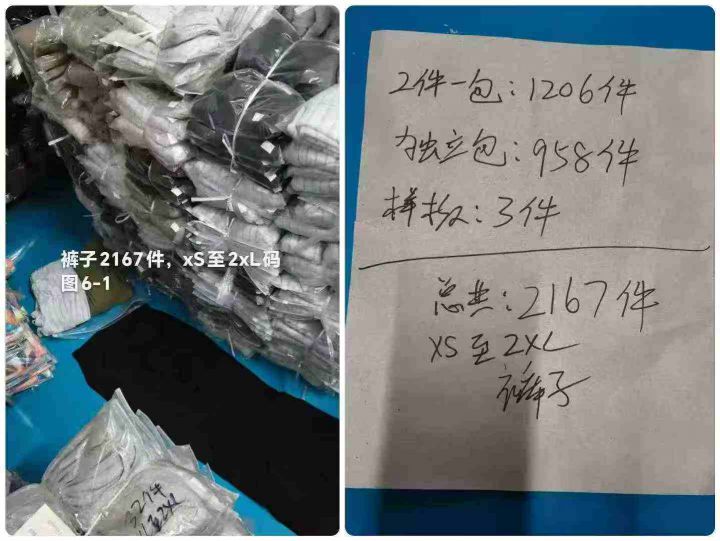 裤子2167件，xS至2xL码
图6-1
32件
至2XL
2件一包：1206件
独立包：958件
样板：3件
总共：2167件
XS至2XL
裤子